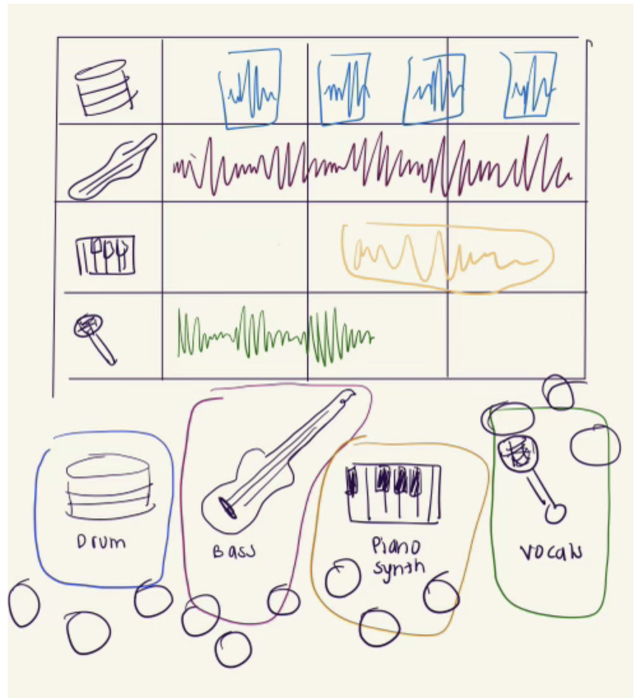 Drum
Bass
Piano
synth
Vocals